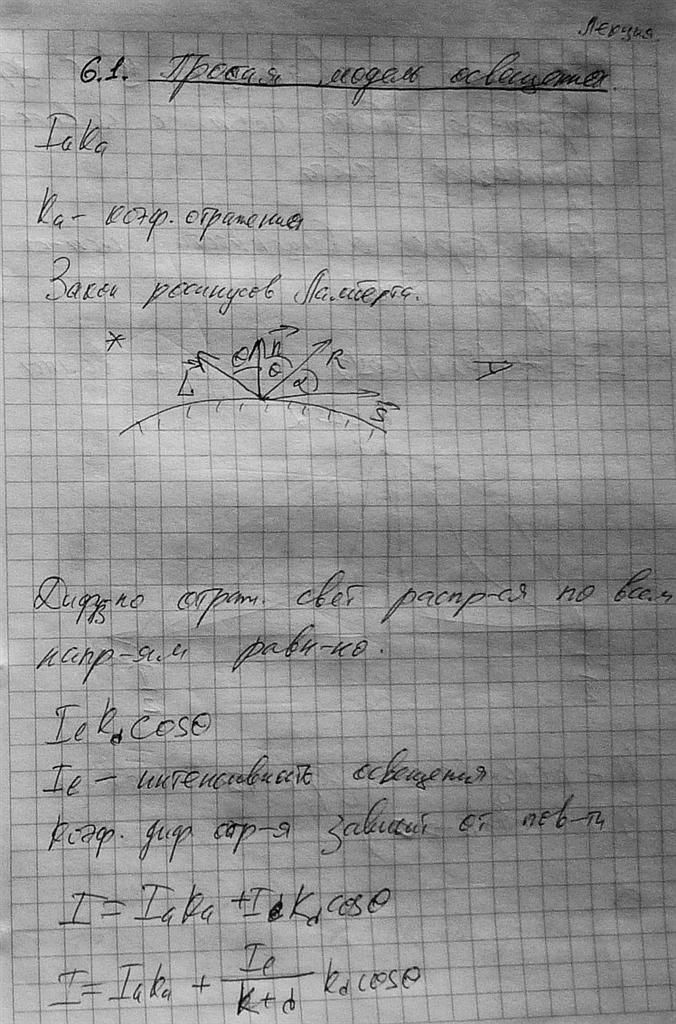 Лекция.
6.1. Простая модель освещения.
IaKa
Ka - коэф. отражения
Закон косинусов Ламберта.
θ n θ R
L α S
Дифуз-но отраж. свет распр-ся по всем
напр-ям равн-но.
Iе Kd cosθ
Ie - интенсивность освещения
Коэф. диф отр-я зависит от пов-ти
I = IaKa + Ie Kd cosθ
I = IaKa + Ie/(K+d) Kd cosθ